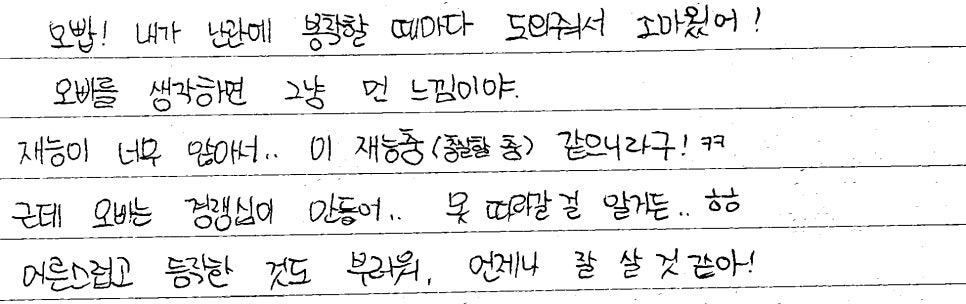 오빱! 내가 난관에 봉착할 때마다 도와줘서 고마웠어!
오빠를 생각하면 그냥 먼 느낌이야.
재능이 너무 많아서.. 이 재능충(충실할 충) 같으니라구! ㅋㅋ
근데 오빠는 경쟁심이 안들어.. 못 따라갈 걸 알거든.. ㅎㅎ
어른스럽고 듬직한 것도 부러워, 언제나 잘 살 것 같아!